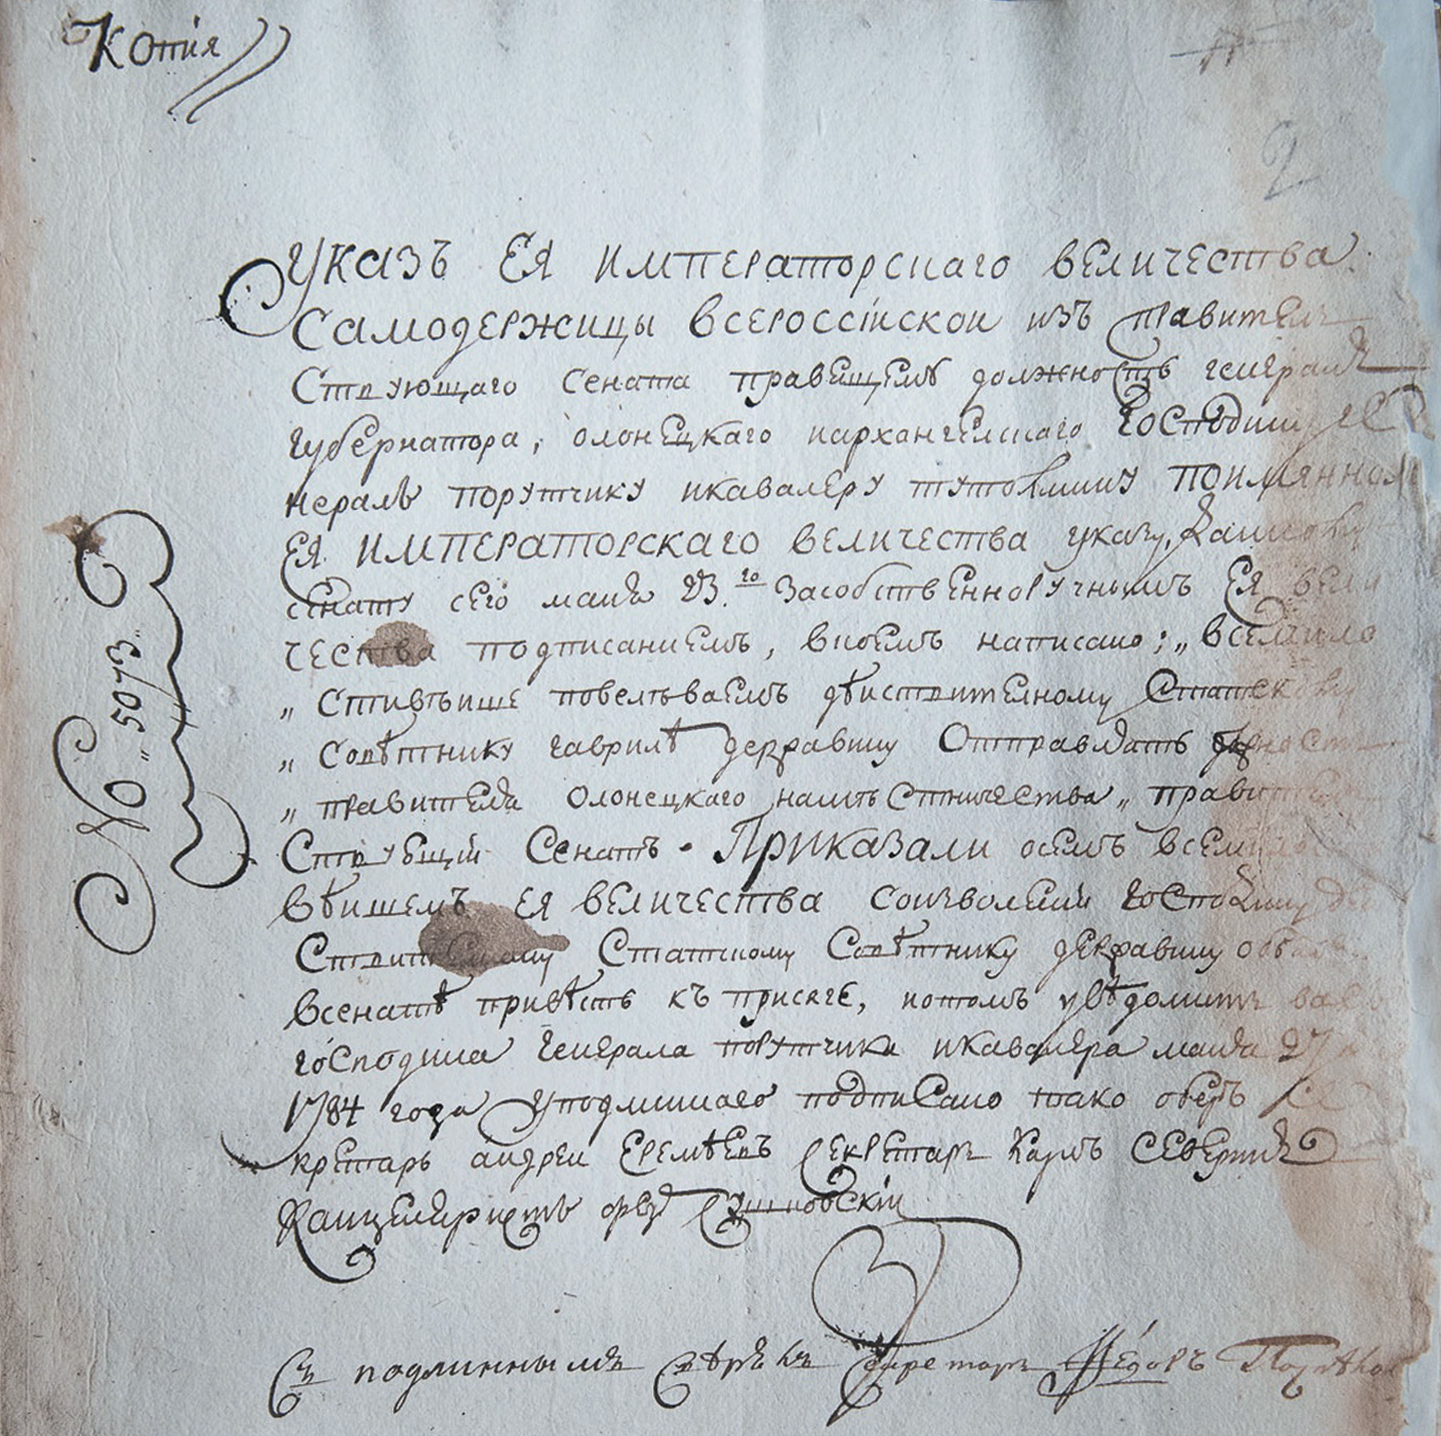 Копия
2
Указъ ЕЯ ИМПЕРАТОРСкаго ВЕЛИЧЕСТВа
Самодержицы Всероссійскои изъ правителъ
Ствующаго Сената правящему должность генерала
губернатора, олонецкаго иархангелскаго Господину ге
нералъ порутчику икавалеру тутолмину ПОИМЯННОМУ
ЕЯ ИМПЕРАТОРСКАГО ВЕЛИЧЕСТВА указу, данному
сенату сего маия 23.го Засобственноручнымъ Ея Вели
ЧЕСтва подписаниемъ, вкоемъ написано; „ Всемило
„ Стивѣише повелѣваемъ дѣиствителному Статскому
„ Совѣтнику гаврилѣ державину Отправлять должность
„ правителя Олонецкаго намѣстничества„ правителъ
Ствующій Сенатъ. Приказали осемъ всемилости
вѣишемъ ея величества Соизволении Господину дѣи
Ствителному Статскому Совѣтнику державину обявя
Всенатѣ привѣсть къ присяге, ипотомъ увѣдомить васъ
господина Генерала порутчика икавалера маия 27
1784 года Уподлиннаго подписано тако оберъ Се
кретарь андреи Еремѣевъ Секретарь Карпъ Северин
Канцеляристъ
С подлиннымъ Секретарь Ѳедоръ
№„ 5073„